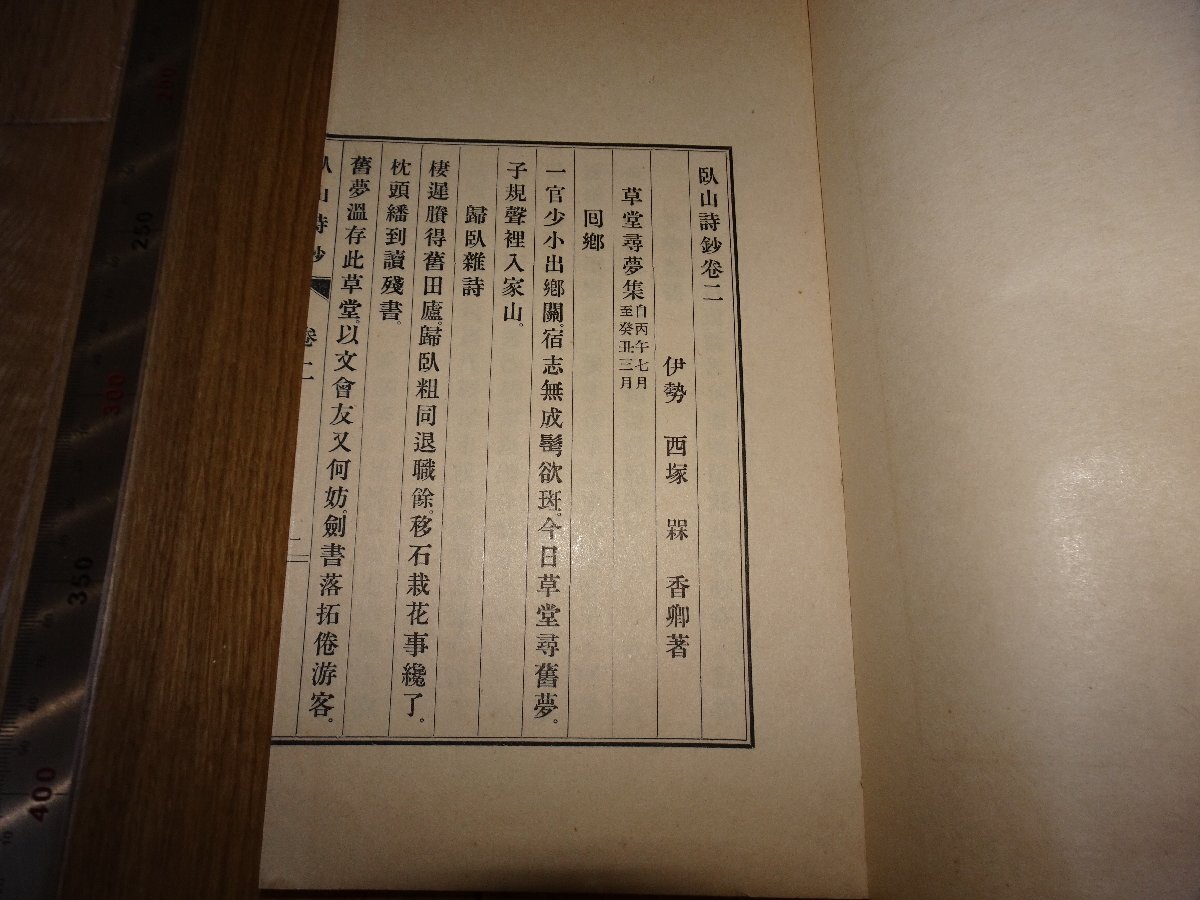 臥山詩鈔卷二
伊勢 西塚 槑 香卿著
草堂尋夢集 自丙午七月 至癸丑三月
回鄕
一官少小出鄕關。宿志無成鬢欲斑。今日草堂尋舊夢。
子規聲裡入家山。
歸臥雜詩
棲遲賸得舊田廬。歸臥粗同退職餘。移石栽花事纔了。
枕頭繙到讀殘書。
舊夢溫存此草堂。以文會友又何妨。劍書落拓倦游客。
臥山詩鈔 卷二
200
250
300
350
400